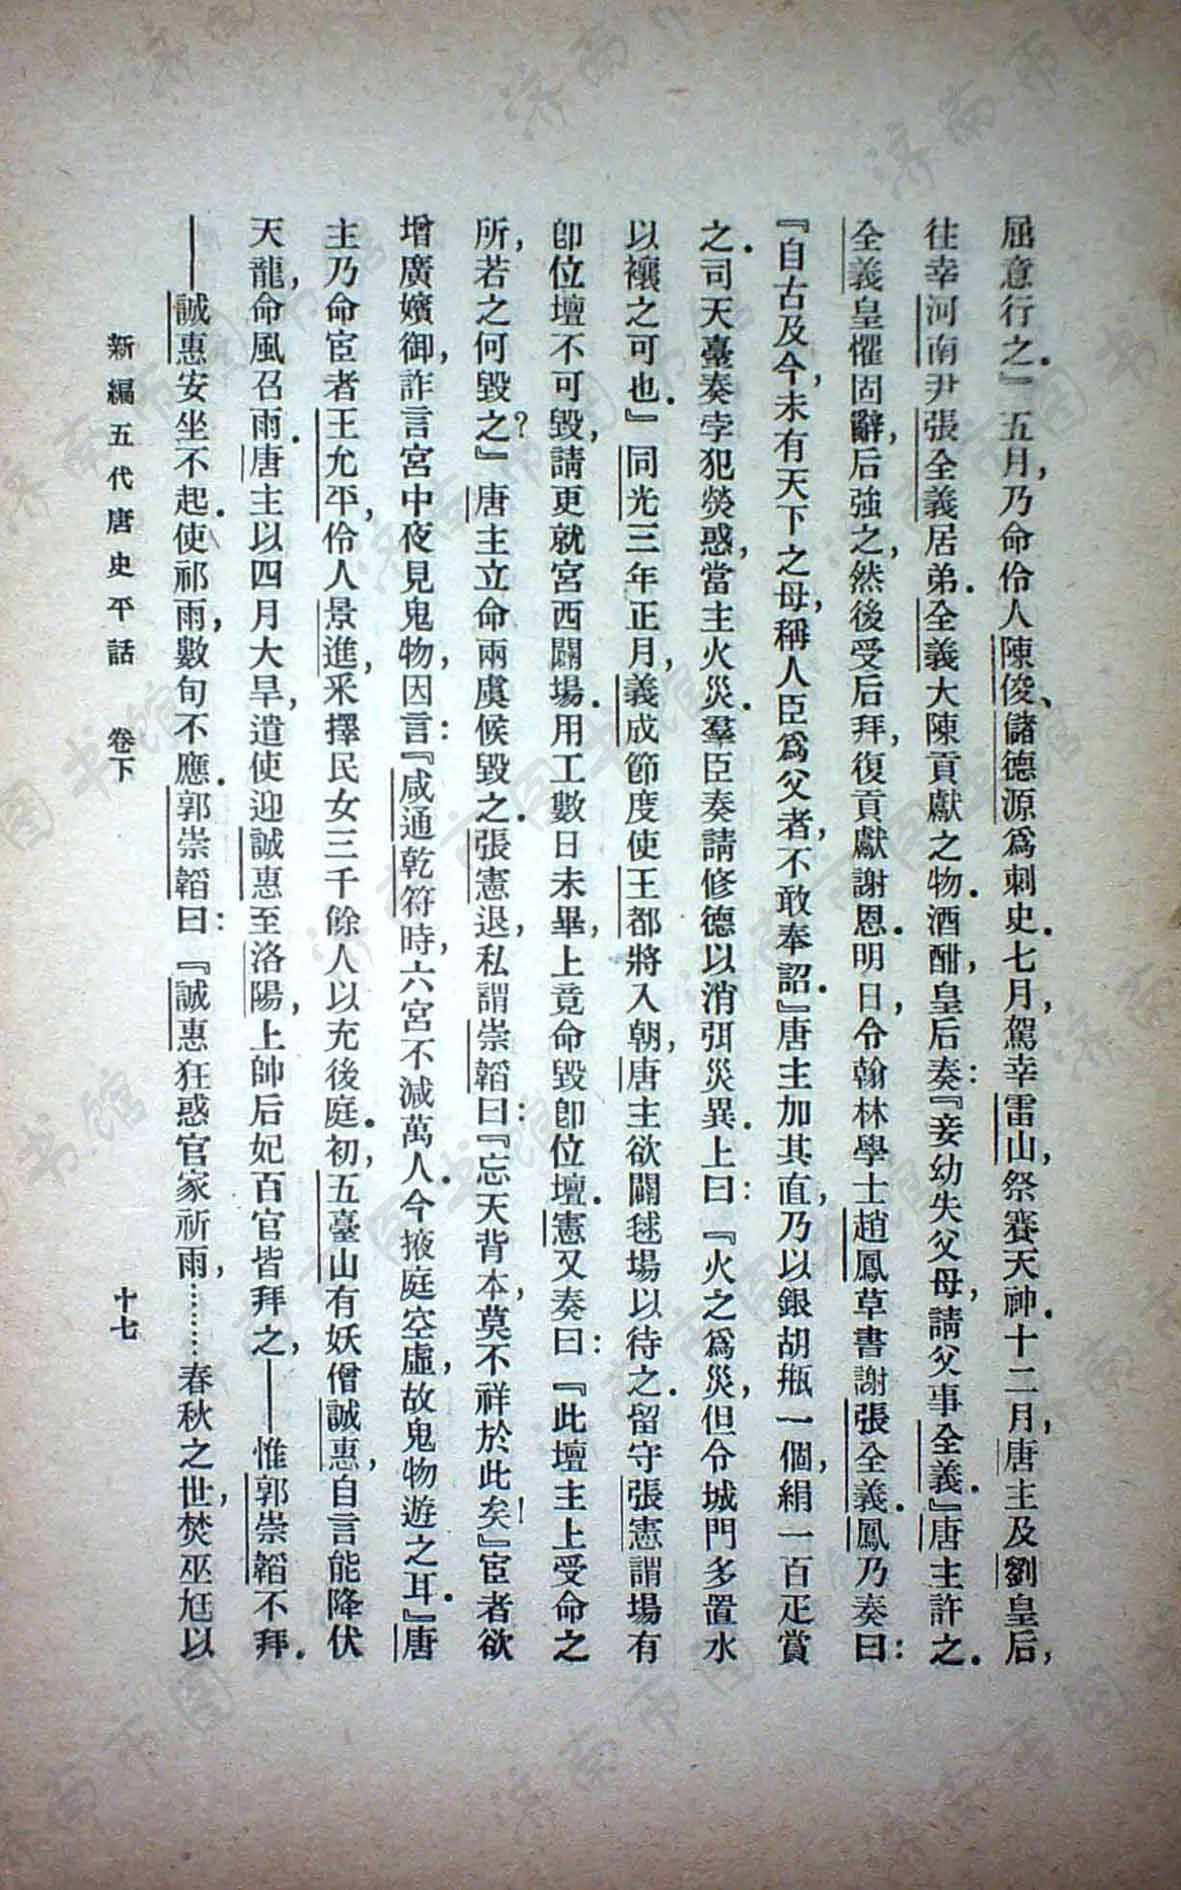 屈意行之。』五月,乃命伶人陳俊、儲德源爲刺史。七月,駕幸雷山,祭賽天神。十二月,唐主及劉皇后,
往幸河南尹張全義居弟。全義大陳貢獻之物。酒酣,皇后奏:『妾幼失父母,請父事全義。』唐主許之。
全義皇懼固辭,后強之,然後受后拜,復貢獻謝恩。明日,令翰林學士趙鳳草書謝張全義。鳳乃奏曰:
『自古及今,未有天下之母,稱人臣爲父者,不敢奉詔。』唐主加其直,乃以銀胡瓶一個,絹一百疋賞
之。司天臺奏孛犯熒惑,當主火災。羣臣奏請修德以消弭災異。上曰:『火之爲災,但令城門多置水
以禳之可也。』同光三年正月,義成節度使王都將入朝,唐主欲闢毬場以待之。留守張憲謂場有
卽位壇不可毀,請更就宮西闢場。用工數日未畢,上竟命毀卽位壇。憲又奏曰:『此壇主上受命之
所,若之何毀之?』唐主立命兩虞候毀之。張憲退,私謂崇韜曰:『忘天背本,莫不祥於此矣!』宦者欲
增廣嬪御,詐言宮中夜見鬼物,因言:『咸通乾符時,六宮不減萬人。今掖庭空虛,故鬼物遊之耳。』唐
主乃命宦者王允平,伶人景進,采擇民女三千餘人以充後庭。初,五臺山有妖僧誠惠,自言能降伏
天龍,命風召雨。唐主以四月大旱,遣使迎誠惠至洛陽,上帥后妃百官皆拜之,——惟郭崇韜不拜。
——誠惠安坐不起。使祁雨,數旬不應。郭崇韜曰:『誠惠狂惑官家祈雨,………春秋之世,焚巫尫以
新編五代唐史平話 卷下 十七